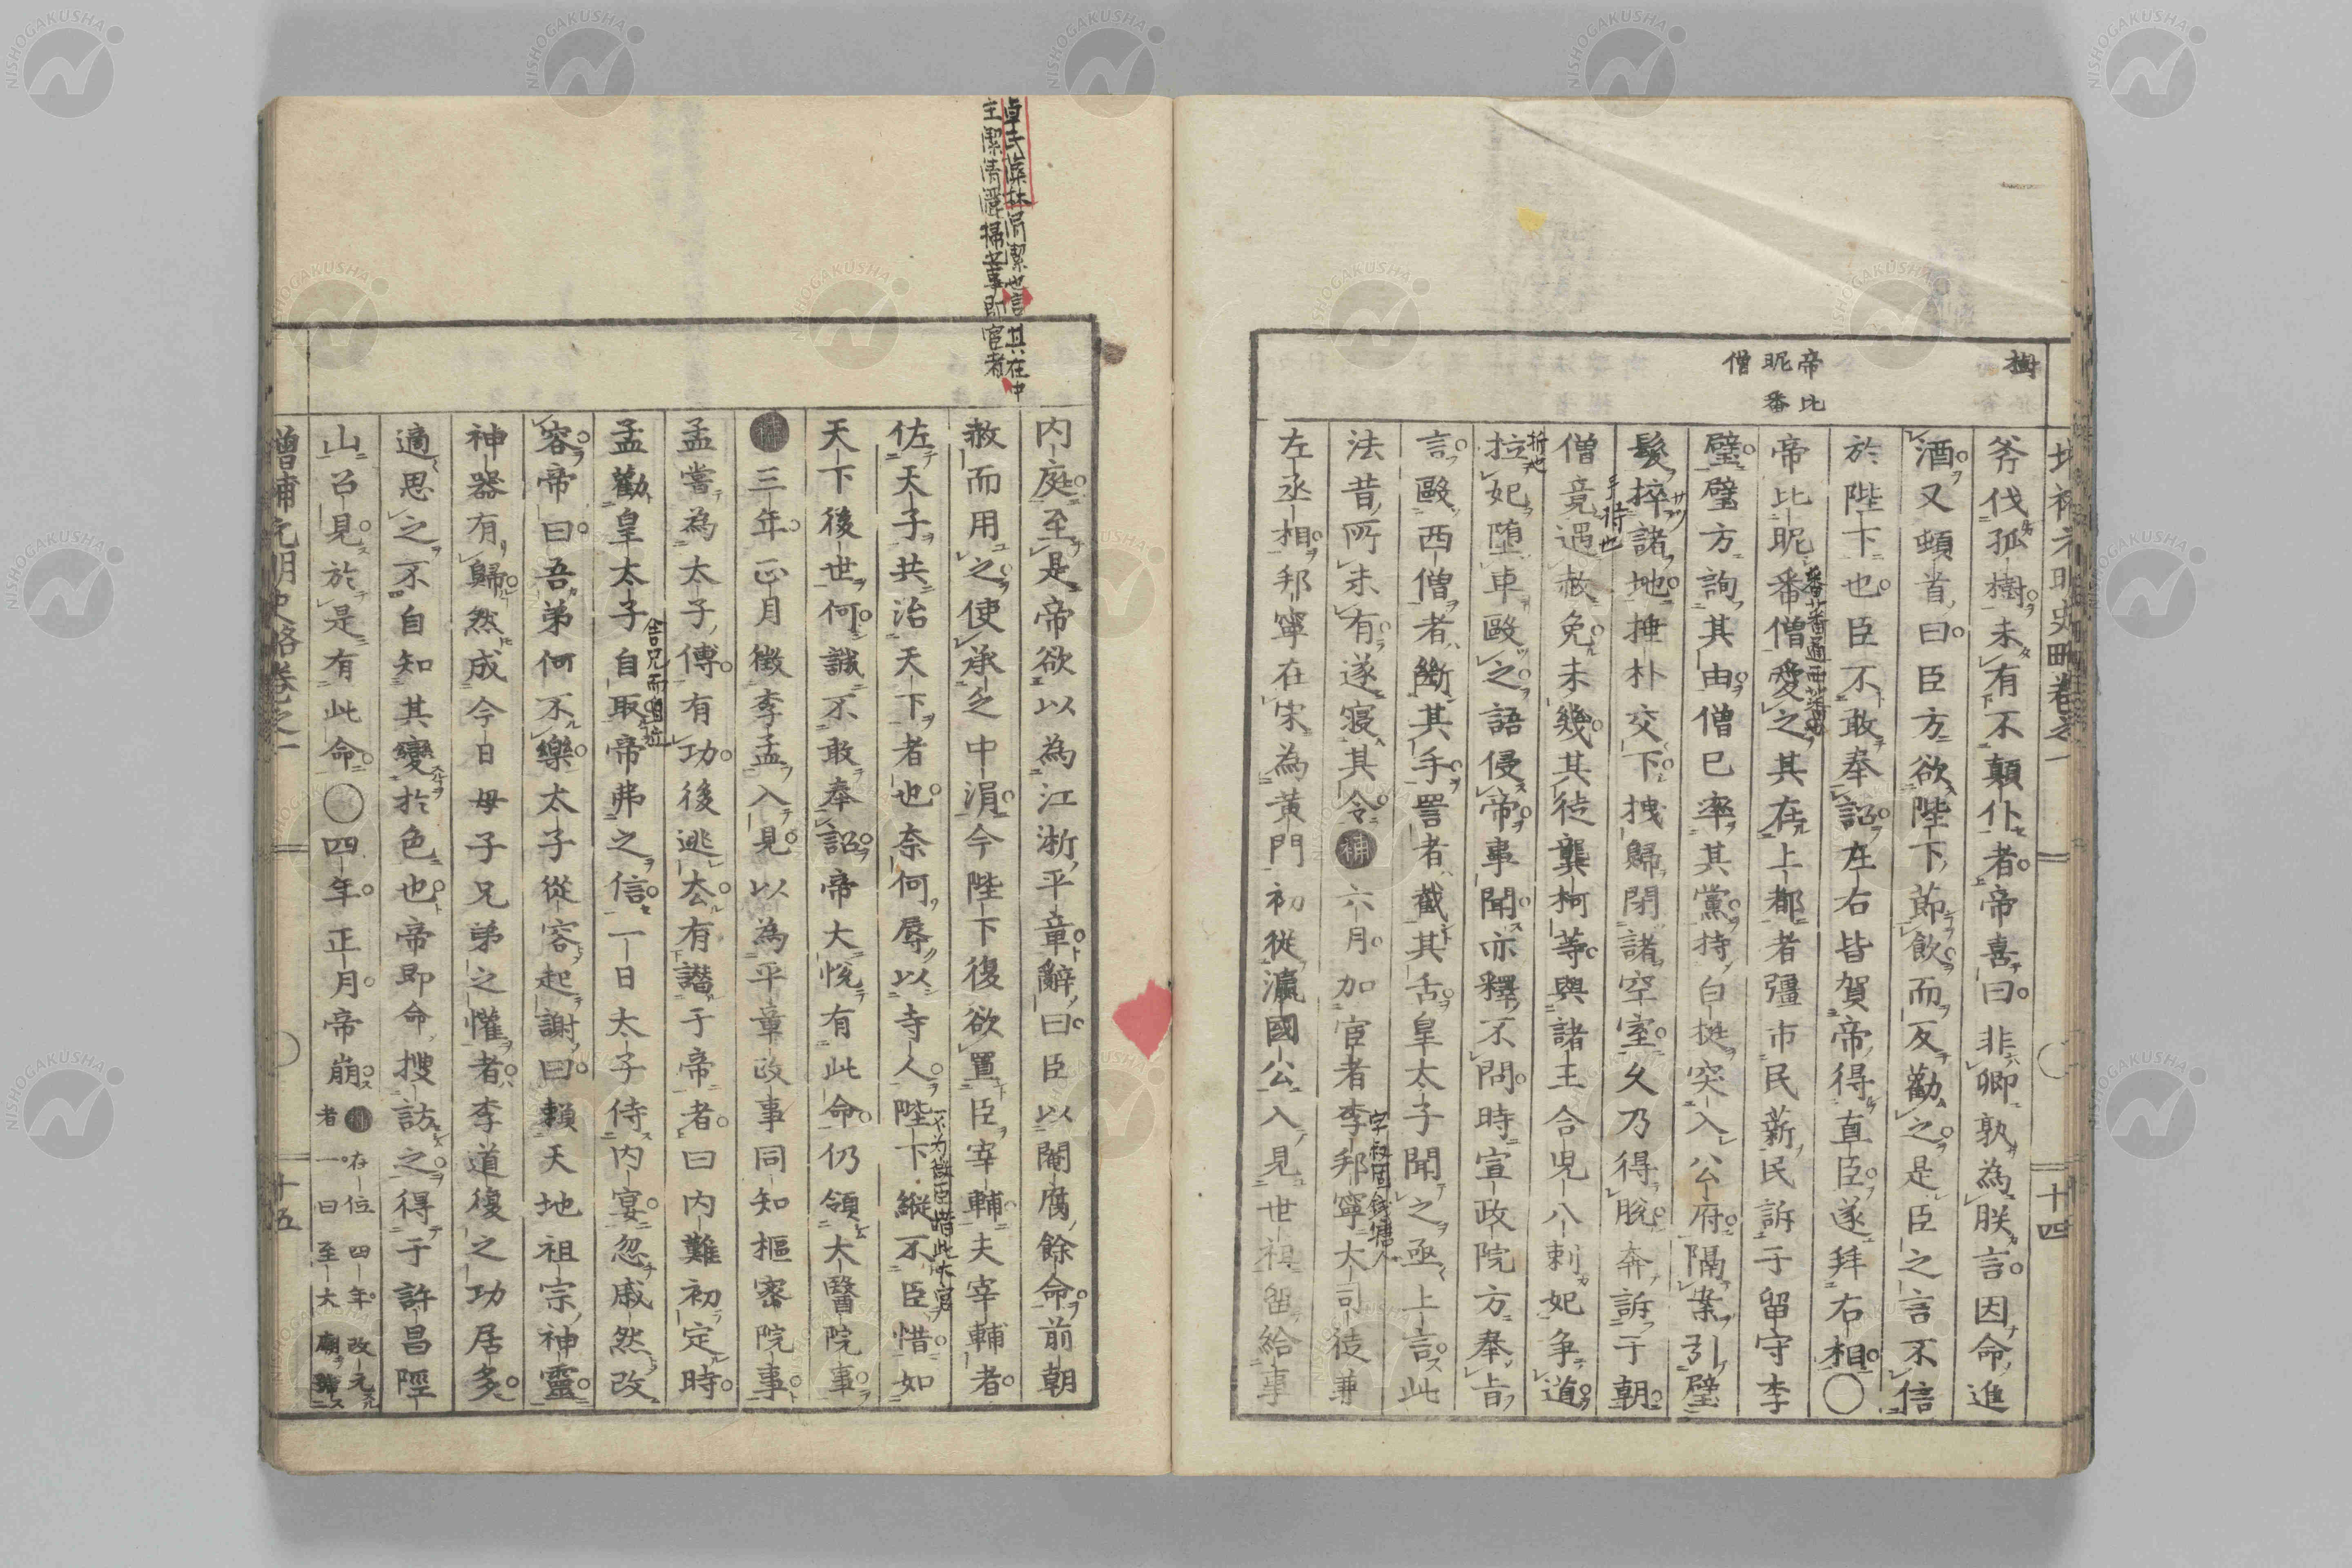 樹
帝比
昵番
僧
斧伐孤樹未有不顛仆者帝喜曰非卿孰為朕言因命進
酒又頓首曰臣方欲陛下節飲而反勸之是臣之言不信
於陛下也臣不敢奉詔左右皆賀帝得直臣遂拜右相○
帝比昵番僧愛之其在上都者彊市民薪民訴于留守李
璧璧方詢其由僧已率其黨持白挺突入公府隔案引璧
髮捽諸地捶朴交下拽歸閉諸空室久乃得脫奔訴于朝
僧竟遇赦免未幾其徒龔柯等與諸王合児八剌妃争道
拉妃墮車毆之語侵帝事聞亦釋不問時宣政院方奉旨
言毆西僧者斷其手詈者截其舌皇太子聞之亟上言此
法昔所未有遂寢其令補六月加宦者李邦寧大司徒兼
左丞相邦寧在宋為黃門初從瀛國公入見世祖留給事
十四
手持也
折也
字叔固錢塘人
内庭至是帝欲以為江浙平章辭曰臣以閹腐餘命前朝
赦而用之使承乏中涓今陛下復欲置臣宰輔夫宰輔者
佐天子共治天下者也奈何辱以寺人陛下縱不臣惜如
天下後世何誠不敢奉詔帝大悅有此命仍領太醫院事
補三年正月徵李孟入見以為平章政事同知樞密院事
孟嘗為太子傅有功後逃去有譖于帝者曰内難初定時
孟勸皇太子自取帝弗之信一日太子侍内宴忽戚然改
容帝曰吾弟何不樂太子從容起謝曰賴天地祖宗神靈
神器有歸然成今日母子兄弟之懽者李道復之功居多
適思之不自知其變於色也帝即命搜訪之得于許昌陘
山召見於是有此命○四年正月帝崩補在位四年改元
者一曰至大廟號
增補元明史略卷之一
十五
卓氏藻林涓潔也言其在中
主潔清洒掃之事即宦者
舍兄而自拉